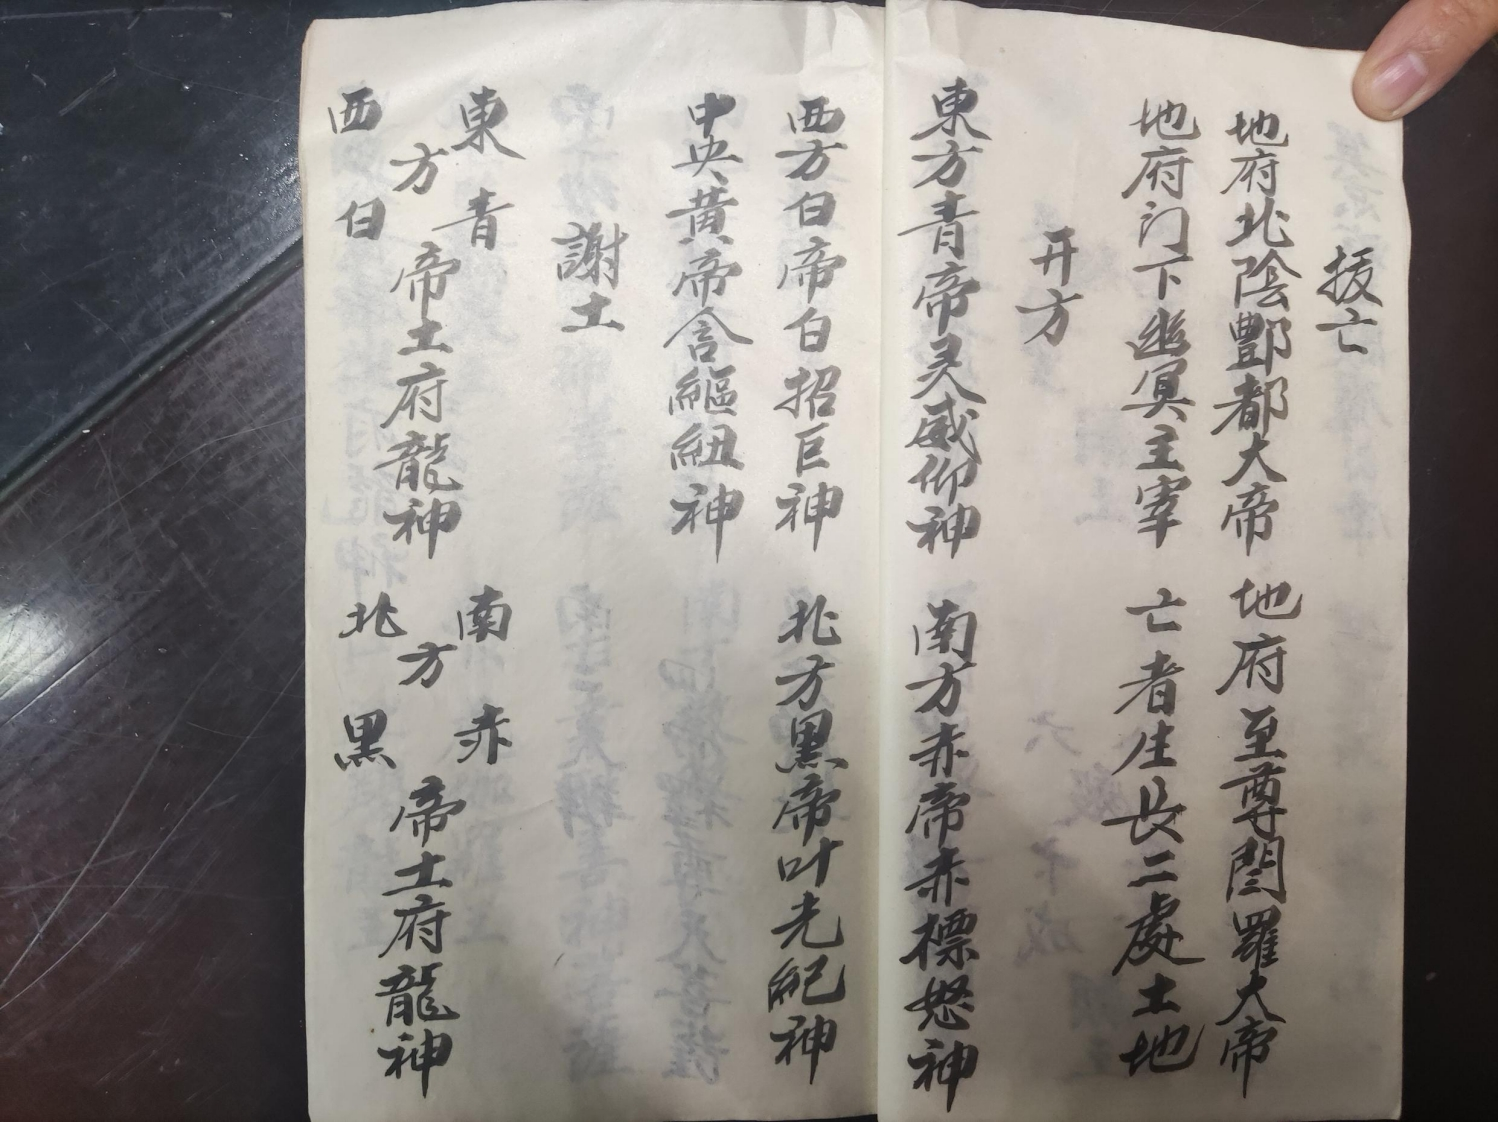 拔亡
地府北陰酆都大帝　地府至尊閻羅大帝
地府门下幽冥主宰　亡者生長二處土地
开方
東方青帝灵威仰神　南方赤帝赤標怒神
西方白帝白招巨神　北方黑帝叶光紀神
中央黄帝含樞紐神
謝土
東　青　南　赤
方　帝土府龍神　方　帝土府龍神
西　白　北　黑